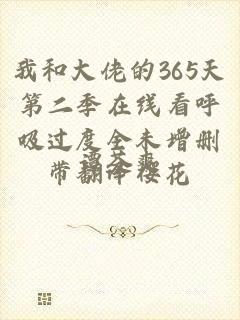 我和大佬的365天
第二季在线看呼
吸过度全未增删
带翻译樱花